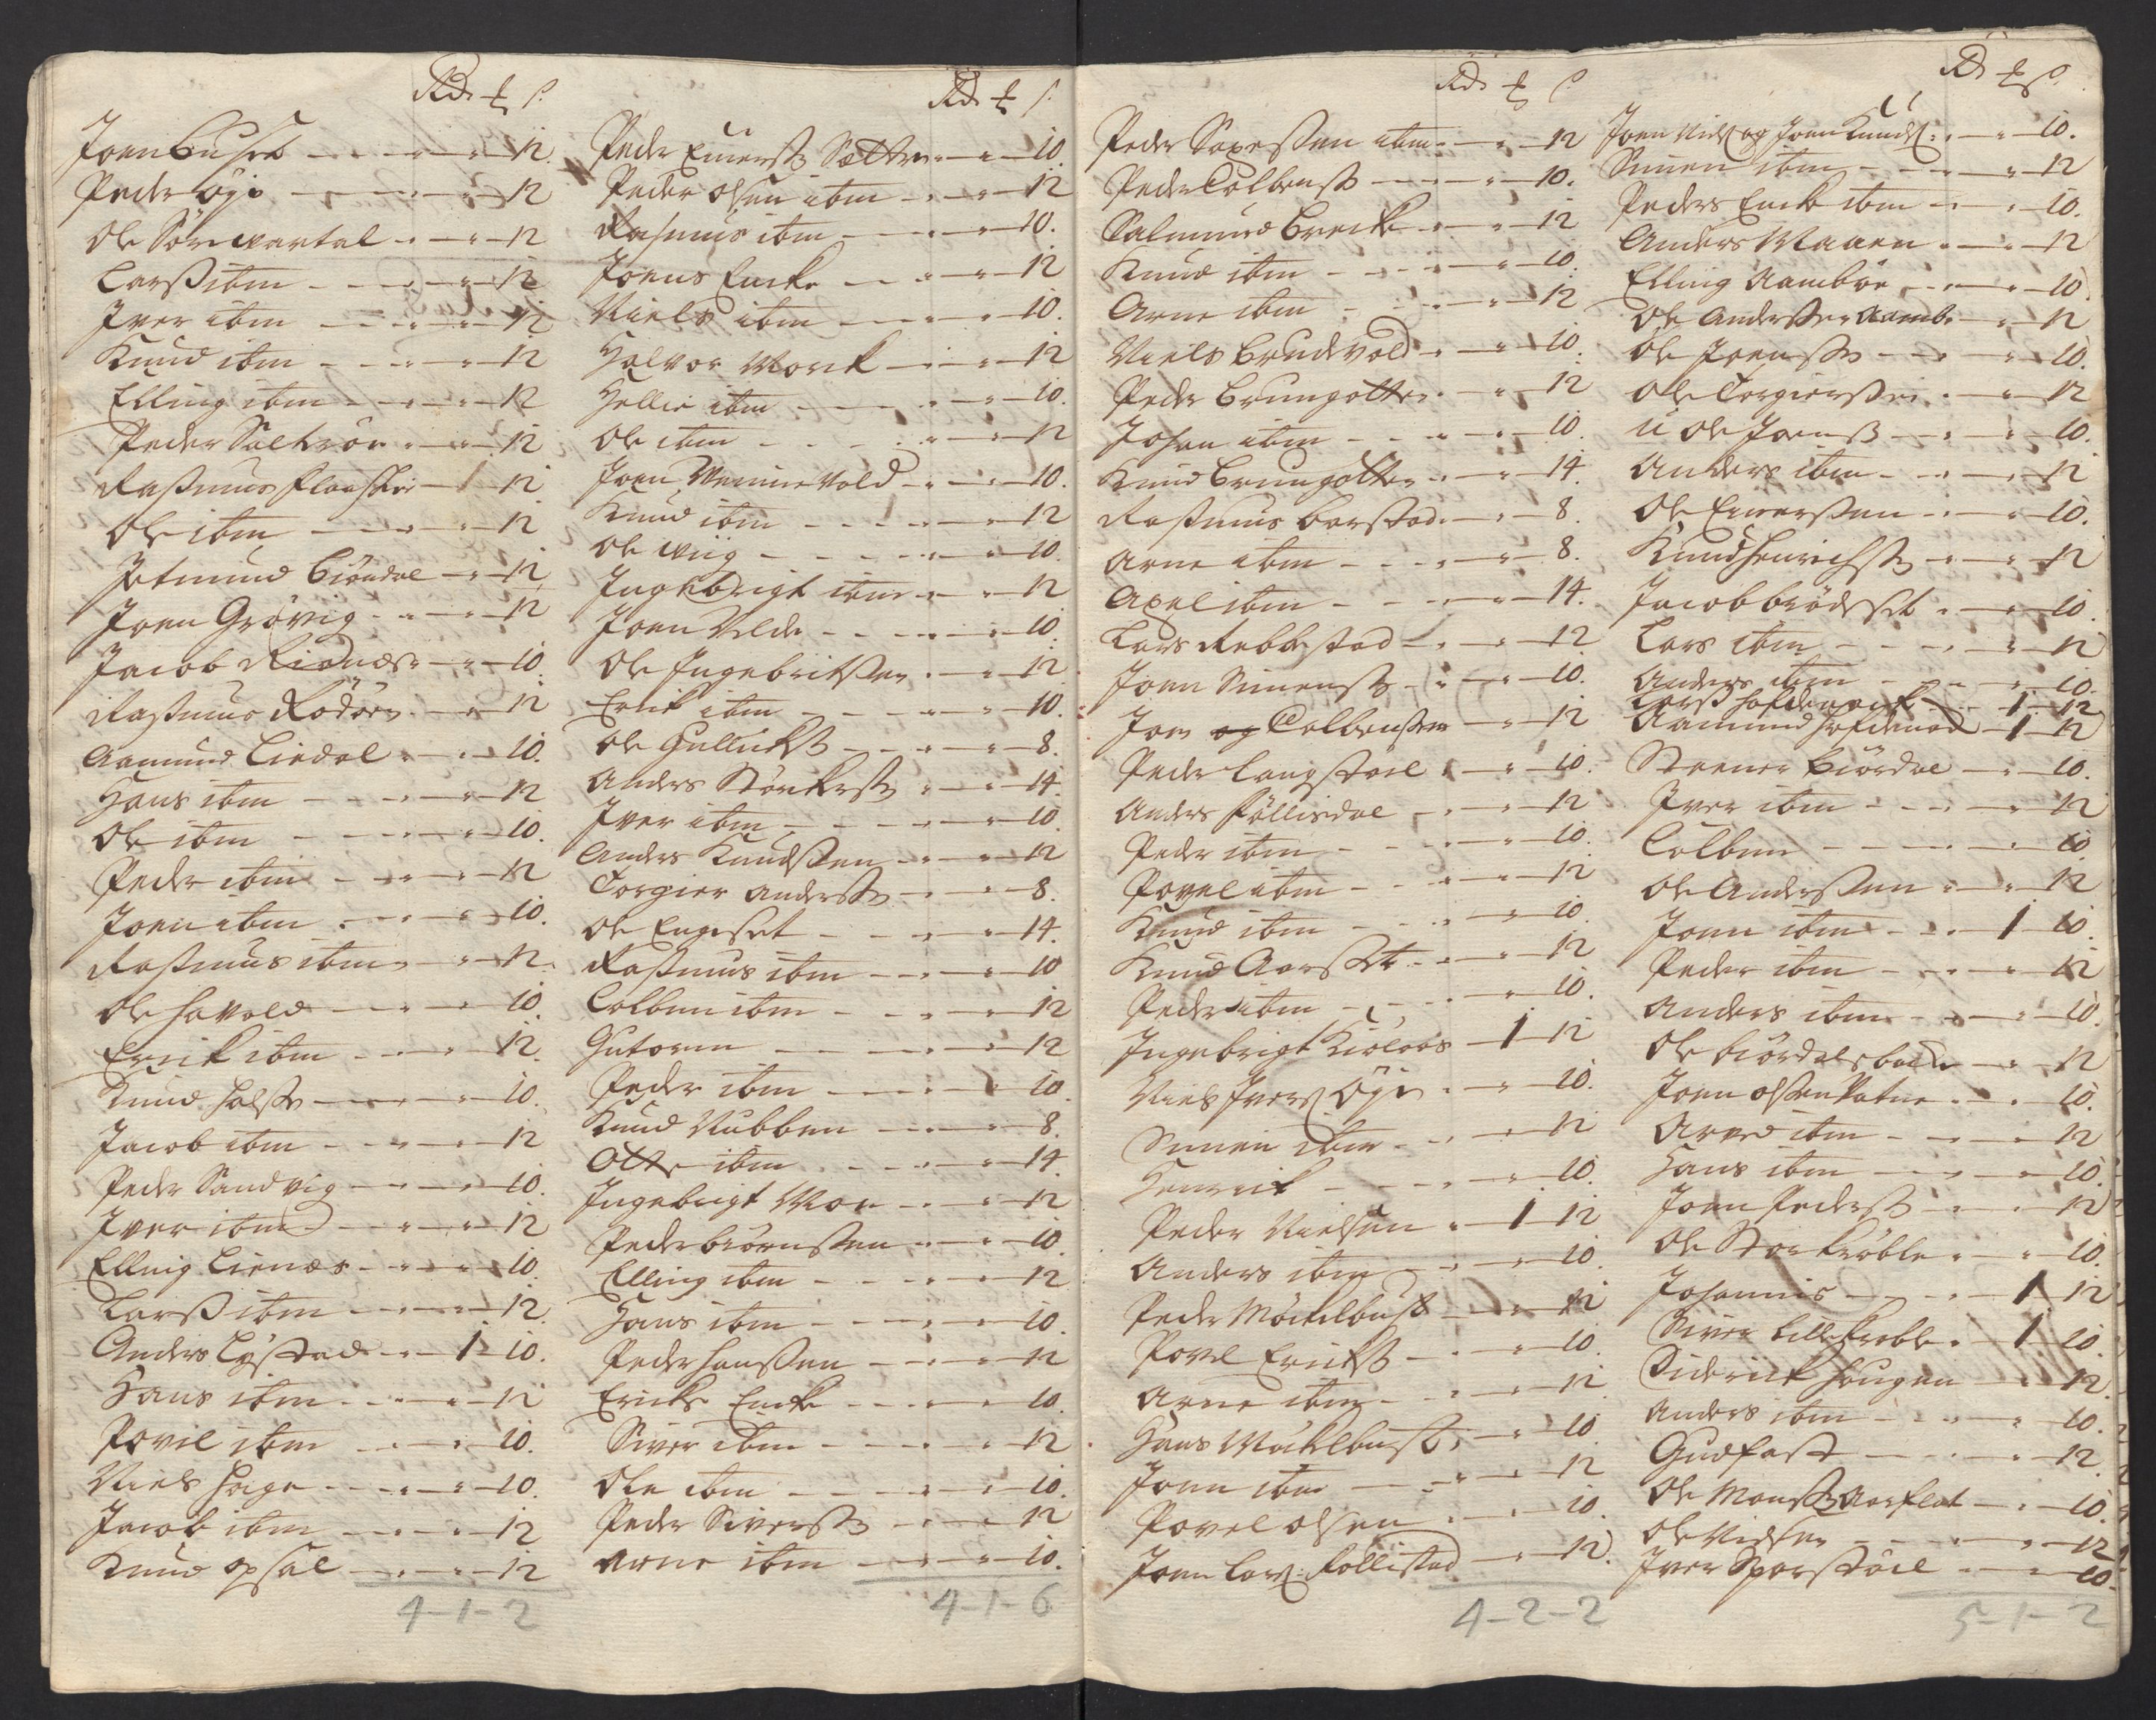 Rd ₰ s.
Joen Buset - - " - 12.
Peder Øye - - " - 12
Ole Sørewartal - " - 12
Larss ibm - - " - 12
Iver ibm - - " - 12
Knud ibm - - " - 12
Elling ibm - - " - 12
Peder Saltrøe - " - 12
Rasmus - 12
Ole ibm - - " - 12
Jetmund Biøndal - " - 12
Joen Grøvig - " - 12
Jacob - " - 10.
Rasmus Rødøen - " - 12
Aamund Liedal - " - 10.
Hans ibm - - " - 12
Ole ibm - - " - 10.
Peder ibm - - " - 12
Joen ibm - - " - 10.
Rasmus ibm - " - 12.
Ole Havold - - " - 10.
Erick ibm - - " - 12.
Knud - - " - 10.
Jacob ibm - - " - 12
Peder Sandvig - " - 10.
Iver ibm - - " - 12
Elling Lienæs - " - 10.
Larss ibm - - " - 12.
Anders Lystad - 1 - 10.
Hans ibm - - " - 12
Povel ibm - - " - 10.
Niels Hage - - " - 10.
Jacob ibm - - " - 12
Knud Opsal - - " - 12
4-1-2
Rd ₰ s.
Peder Sætter - " - 10.
Peder Olsen ibm - " - 12
Rasmus ibm - - " - 10.
Joens Encke - - " - 12
Niels ibm - - " - 10.
Halvor Morck - " - 12
Hellie ibm - - " - 10.
Ole ibm - - " - 12
Joen Vold - " - 10.
Knud ibm - - " - 12
Ole Wiig - - " - 10.
Ingebrigt ibm - " - 12
Joen Velde - - " - 10.
Ole Ingebritssen - " - 12
Erick ibm - - " - 10.
Ole Gullickss - " - 8.
Anders - " - 14.
Iver ibm - - " - 10.
Anders Knudssen - " - 12
Torgier Anderss - " - 8.
Ole Engeset - - " - 14.
Rasmus ibm - - " - 10
Colben ibm - - " - 12
Gutorm - - " - 12
Peder ibm - - " - 10.
Knud Nubben - " - 8.
Otte ibm - - " - 14.
Ingebrigt Moe - " - 12
Peder Biørnssen - " - 10.
Elling ibm - - " - 12
Hans ibm - - " - 10.
Peder Hanssen - " - 12
Erick Encke - - " - 10.
Siver ibm - - " - 12
Ole ibm - - " - 10.
Peder Siverss - " - 12
Arne ibm - - " - 10.
4-1-6
Rd ₰ s
Peder Saxessen ibm - " - 12
Peder Colbenss - " - 10.
Salmund Breche - " - 12
Knud ibm - - " - 10.
Arne ibm - - " - 12
Niels Brudevold - " - 10.
Peder Brungotten - " - 12
Johan ibm - - " - 10.
Knud Brungotten - " - 14.
Rasmus Barstad - " - 8.
Arne ibm - - " - 8.
Axel ibm - - " - 14.
Lars Rebbestad - " - 12
Joen Simenss - " - 10.
Joen Colbenssen - " - 12
Peder Langstøel - " - 10.
Anders Føllisdal - " - 12
Peder ibm - - " - 10.
Povel ibm - - " - 12
Knud ibm - - " - 10.
Knud Aarsset - " - 12
Peder ibm - - " - 10.
Ingebrigt Kiølaas - 1 - 12
Niels Ivers Øye - " - 10.
Simen ibm - - " - 12
Henrick - - " - 10.
Peder Nielsen - 1 - 12
Anders ibm - - " - 10.
Peder Møckelbust - " - 12
Povel Erickss - " - 10.
Arne ibm - - " - 12
Hans Møckelbust - " - 10
Joen ibm - - " - 12
Povel Olsen - - " - 10.
Joen Lars: Follistad - " - 12.
4-2-2
Rd ₰ s.
Joen Niels og Joen Knuds: - " - 10.
Simen ibm - - " - 12
Peders Encke ibm - " - 10.
Anders Maaren - " - 12
Elling Aambøe - " - 10.
Ole Anderssen Aamb. - " - 12
Ole Joenssen - " - 10.
Ole Torgierssen - " - 12
Ole Joenss - " - 10.
Anders ibm - - " - 12
Ole - " - 10.
Knud Henrichss - " - 12
Jacob Brødeset - " - 10
Lars ibm - - " - 12
Anders ibm - - " - 10.
Larss - 1 - 12
Aamund - 1 - 12
Steener Biørdal - " - 10.
Iver ibm - - " - 12
Colben - - " - 10.
Ole Anderssen - " - 12
Joen ibm - - 1 - 10.
Peder ibm - - " - 12
Anders ibm - - " - 10.
Ole Biørdalsbache - " - 12
Joen Olssen Vatne - " - 10.
Arved ibm - - " - 12
Hans ibm - - " - 10.
Joen Pederss - - " - 12
Ole Store Krøble - " - 10.
Johannis - - 1 - 12
Siver Lille Krøble - 1 - 10.
Diderick Hougen - " - 12.
Anders ibm - - " - 10.
Gudfast - - " - 12.
Ole Monss Aarflot - " - 10.
Ole Nielsen - - " - 12
Iver Sporstøel - " - 10.
5-1-2